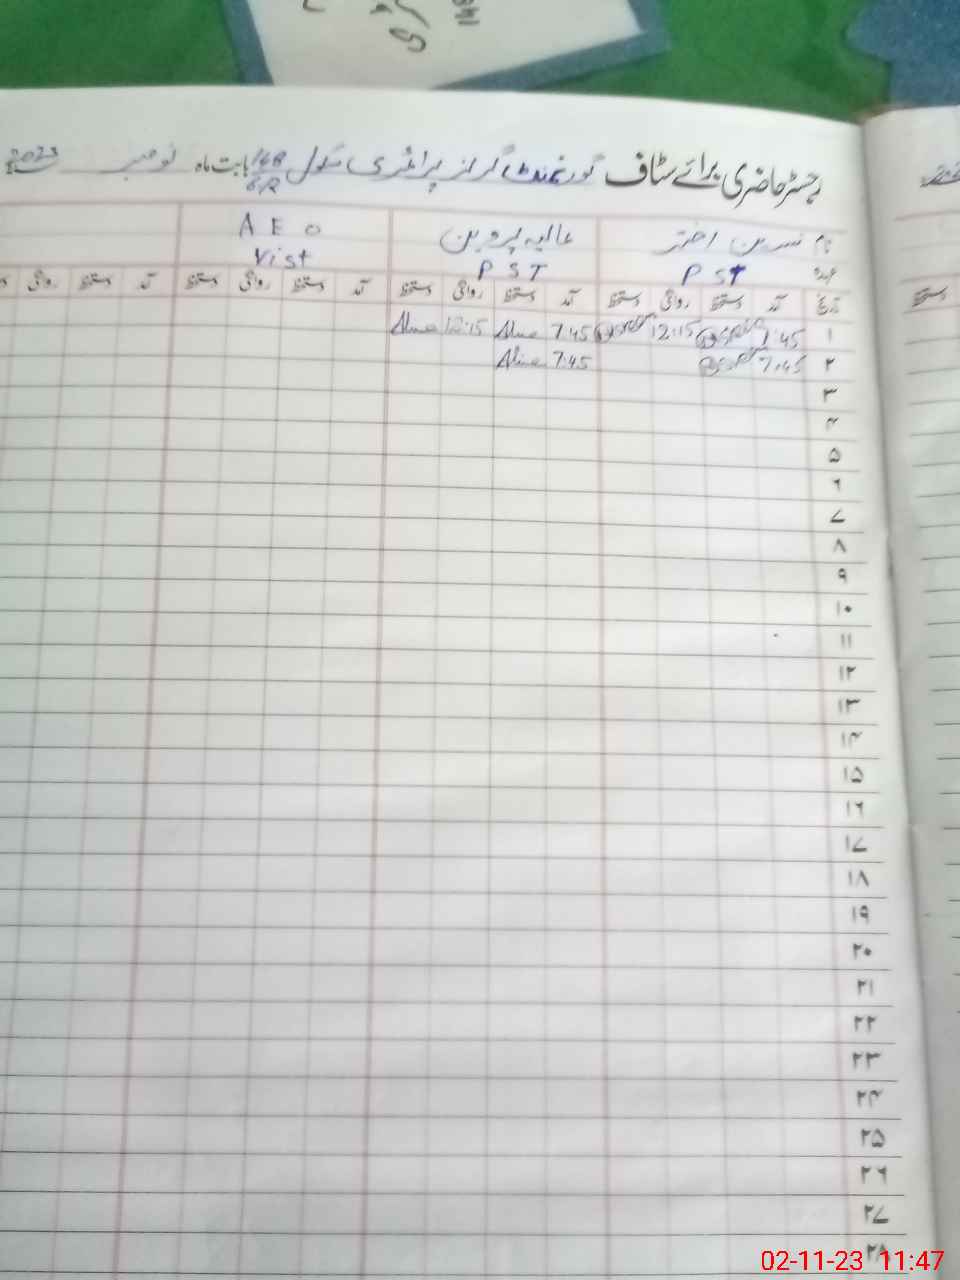 رجسٹر حاضری برائے سٹاف گورنمنٹ گرلز پرائمری سکول 168/6R بابت ماہ نومبر 2023
نام نسرین اختر عالیہ پروین A E O
عہدہ P S T P S T Vist
تاریخ آمد دستخط روانگی دستخط آمد دستخط روانگی دستخط آمد دستخط روانگی دستخط آمد دستخط روانگی
۱ 7:45 12:15 7:45 12:15
۲ 7:45 7:45
۳
۴
۵
۶
۷
۸
۹
۱۰
۱۱
۱۲
۱۳
۱۴
۱۵
۱۶
۱۷
۱۸
۱۹
۲۰
۲۱
۲۲
۲۳
۲۴
۲۵
۲۶
۲۷
۲۸
02-11-23 11:47